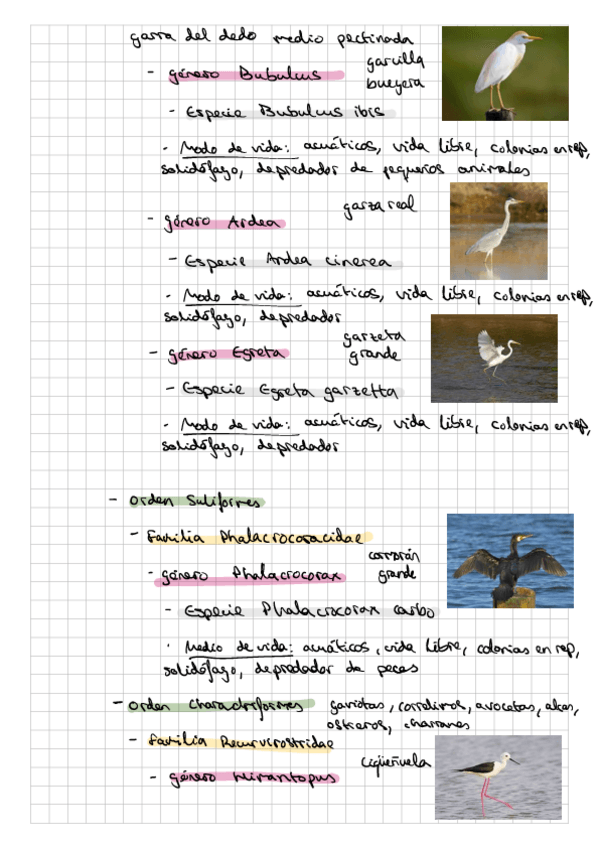 garra del dedo medio pectinada
- género Bubulcus garcilla bueyera
- Especie Bubulcus ibis
· Modo de vida: acuáticos, vida libre, colonias en rep,
solidófago, depredador de pequeños animales
- género Ardea garza real
- Especie Ardea cinerea
· Modo de vida: acuáticos, vida libre, colonias en rep,
solidófago, depredador
- género Egreta garzeta grande
- Especie Egreta garzetta
· Modo de vida: acuáticos, vida libre, colonias en rep,
solidófago, depredador
- Orden Suliformes
- Familia Phalacrocoracidae
- género Phalacrocorax cormorán grande
- Especie Phalacrocorax carbo
· Medio de vida: acuáticos, vida libre, colonias en rep,
solidófago, depredador de peces
- Orden Charadriformes gaviotas, correlimos, avocetas, alcas,
ostreros, charranes
- Familia Recurvirostridae
- género Himantopus cigüeñuela